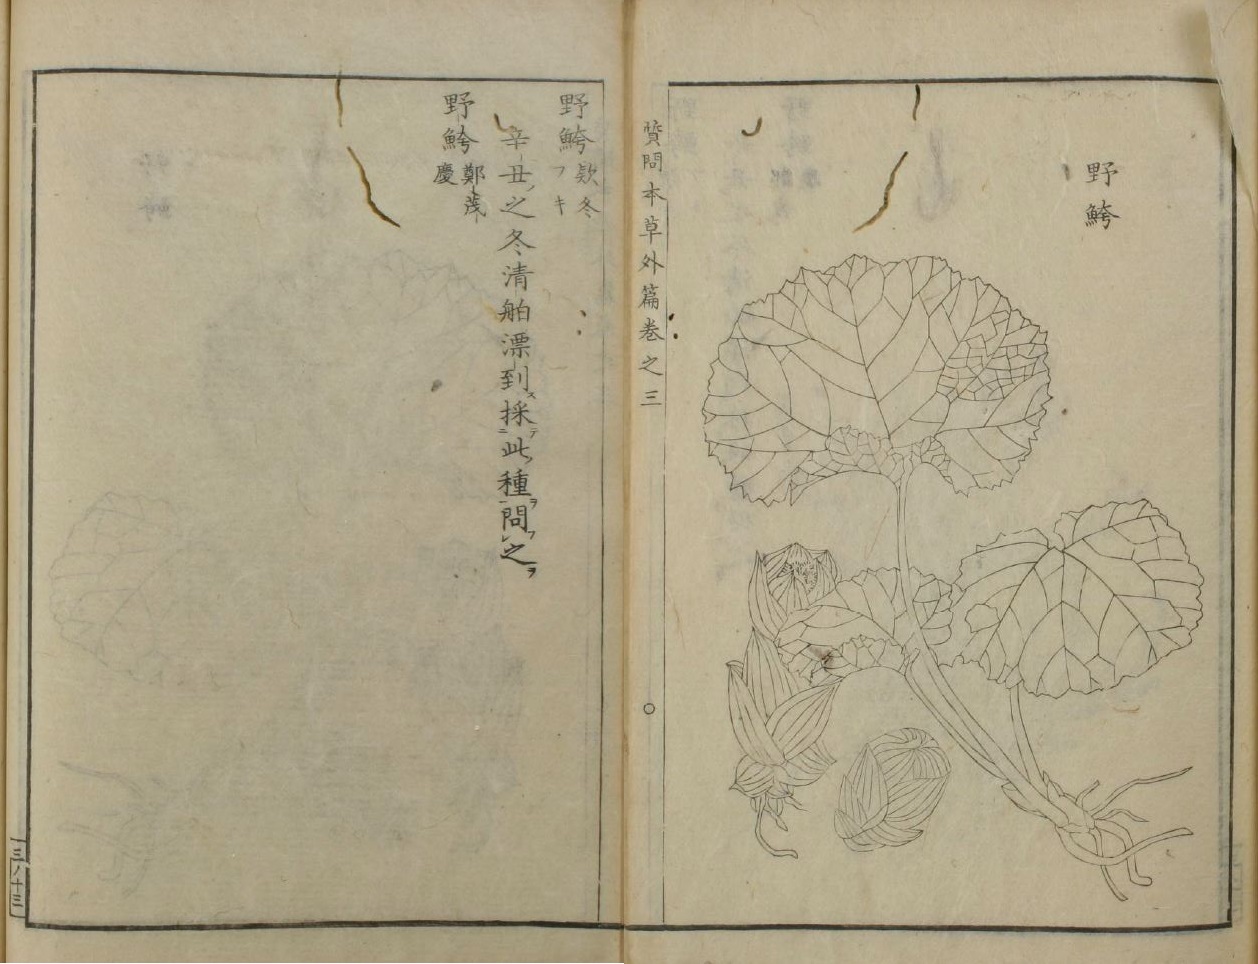 野鮬
質問本草外篇巻之三
野鮬 欵冬 フキ
辛丑之冬清舶漂到採此種問之
野鮬 鄭茂慶
三ノ十三